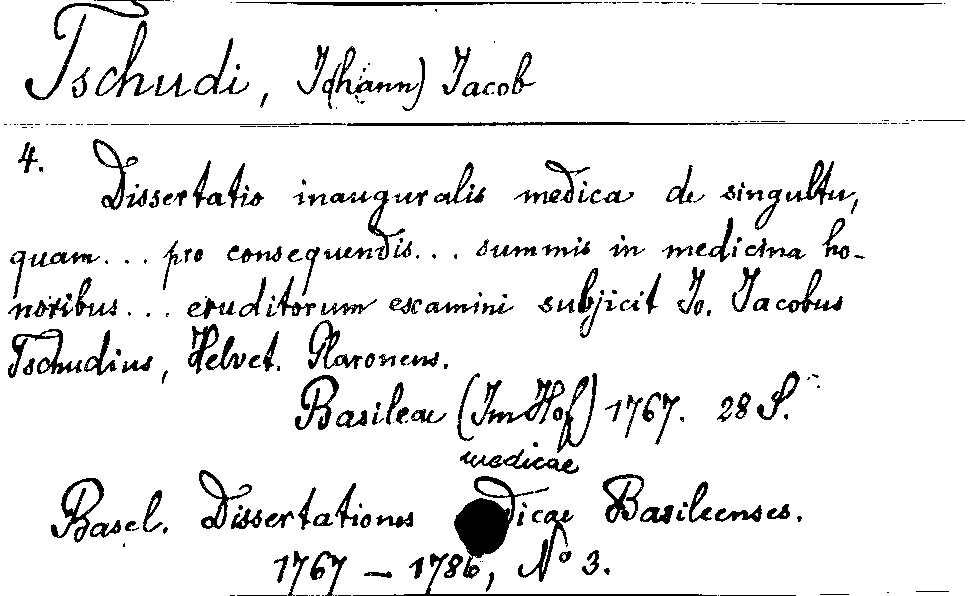 Tschudi, Jo(hann) Jacob
4. Dissertatio inauguralis medica de singultu,
quam... pro consequendis... summis in medicina ho-
noribus... eruditorum examini subjicit Jo. Jacobus
Tschudius, Helvet. Glaronens.
Basileae (Im Hof) 1767. 28 S.
medicae
Basel. Dissertationes dicae Basileenses.
1767 – 1786, No 3.